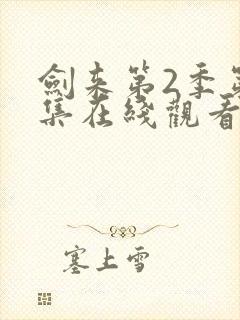 劍来第2季第
集在綫觀看
塞上雪